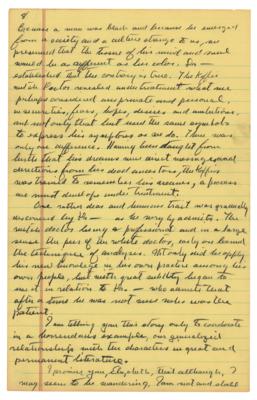 8
Because a man was black and because he emerged
from a society and a culture strange to us, we
presumed that the tissue of his mind and soul
would be as different as his color. Dr —
established that the contrary is true. The Kaffir
witch doctor revealed under treatment what we
perhaps considered our private and personal,
insecurities, fears, hopes, desires, and ambitions,
and not only that but used the same symbols
to express his symptoms as we do. There was
only one difference. Having been taught from
birth that his dreams were direct messages and
directions from his dead ancestors, the Kaffir
was trained to remember his dreams, a process
we must develop under treatment.
One rather dear and humorous trait was gradually
discerned by Dr — as he very by admits. The
witch doctor being a professional and in a large
sense the peer of the white doctor, early on learned
the techniques of analysis. Not only did he apply
his new knowledge in his own practice among his
own people, but with great subtlety began to
use it in relation to Dr. — who admits that
after a time he was not sure who was the
patient.
I am telling you this story only to corroborate
in a horrendous example, our unrealized
relationships with the characters in great and
permanent literature.
I promise you, Elizabeth, that although, I
may seem to be wandering, I am not and shall